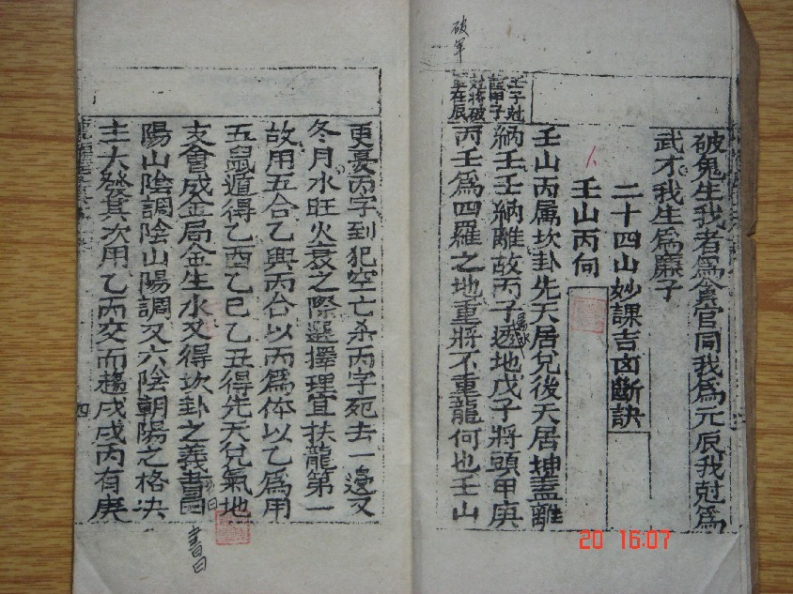 破鬼生我者為貪官同我為元辰我尅為
武才我生為廉子
二十四山妙課吉凶斷訣
壬山丙向
壬山丙属坎卦先天居兌後天居坤蓋離
納壬壬納離故丙子透地戊子將頭甲庚
丙壬為四羅之地重將不重龍何也壬山
破軍
壬子尅
甲子
尅將破
軍在辰
更憂丙字到犯空亡杀丙字死去一邊又
冬月水旺火衰之際選擇理宜扶龍第一
故用五合乙與丙合以丙為体以乙為用
五鼠遁得乙酉乙巳乙丑得先天兌氣地
支會成金局金生水又得坎卦之義書曰
陽山陰調陰山陽調又六陰朝陽之格决
主大發其次用乙丙交而趨戌戌丙有庚
書曰
四
20 16:07